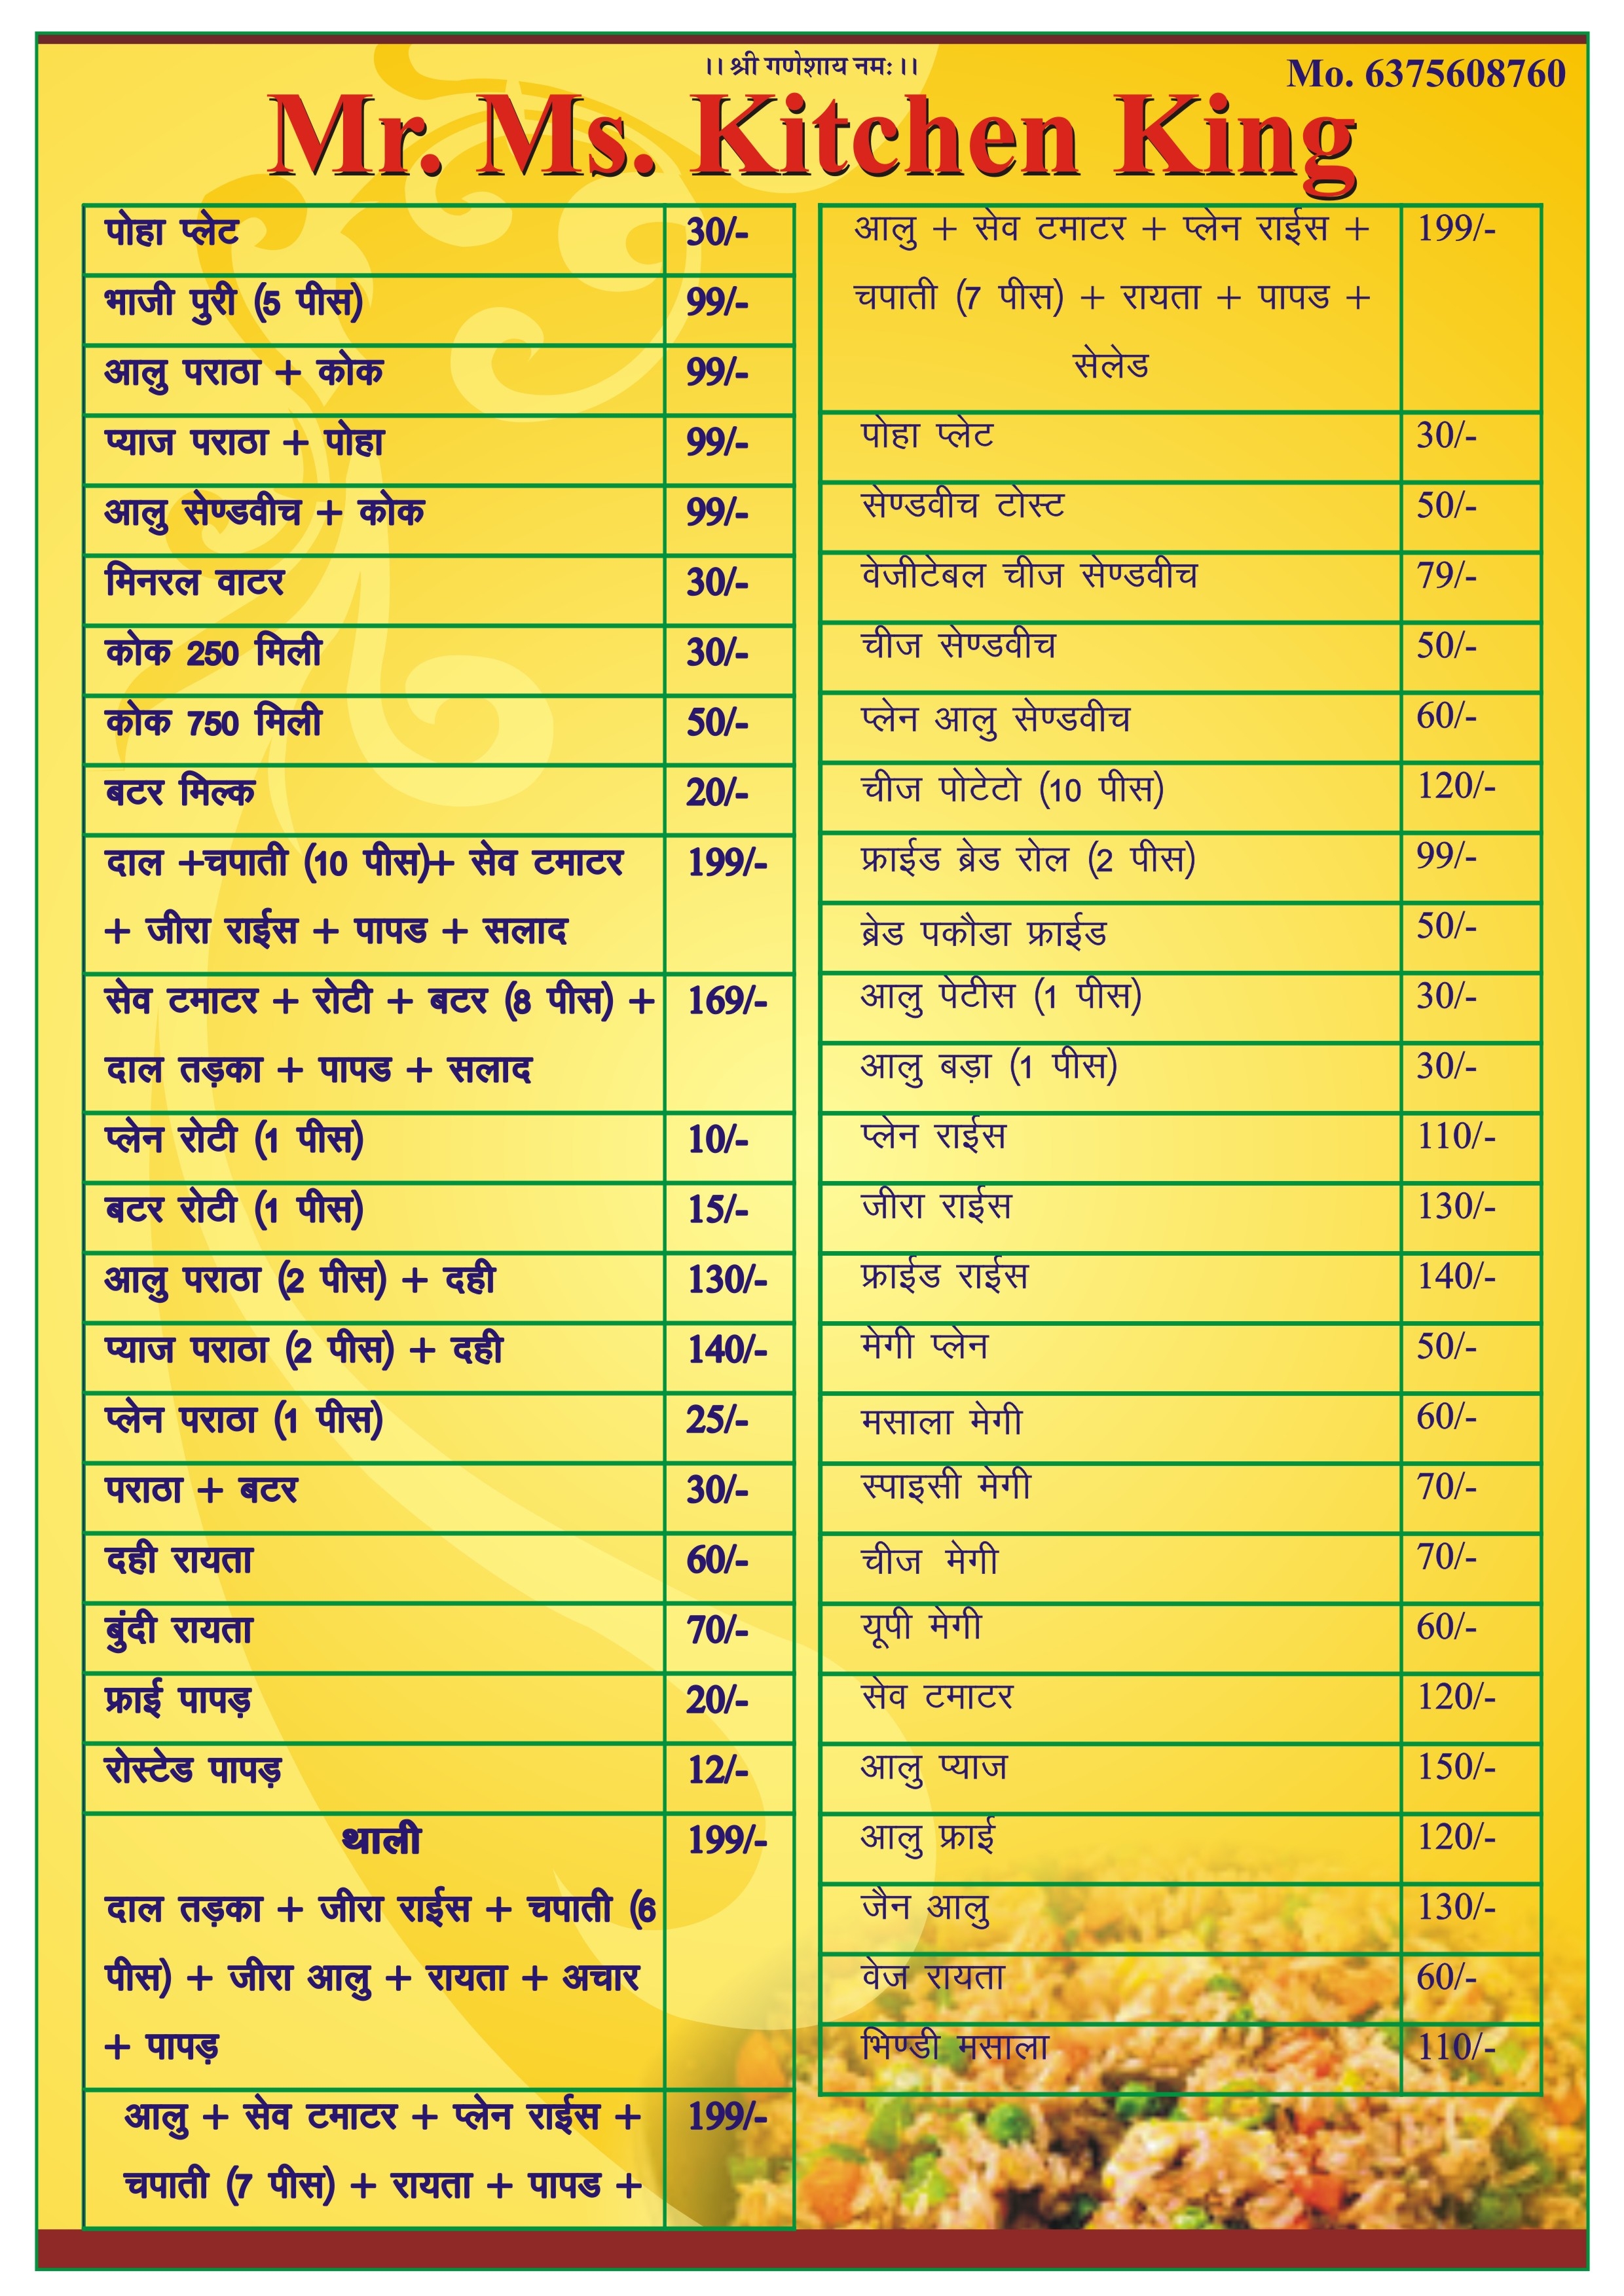 ।। श्री गणेशाय नमः ।।
Mo. 6375608760
Mr. Ms. Kitchen King
पोहा प्लेट 30/-
भाजी पुरी (5 पीस) 99/-
आलु पराठा + कोक 99/-
प्याज पराठा + पोहा 99/-
आलु सेण्डवीच + कोक 99/-
मिनरल वाटर 30/-
कोक 250 मिली 30/-
कोक 750 मिली 50/-
बटर मिल्क 20/-
दाल +चपाती (10 पीस)+ सेव टमाटर 199/-
+ जीरा राईस + पापड + सलाद
सेव टमाटर + रोटी + बटर (8 पीस) + 169/-
दाल तड़का + पापड + सलाद
प्लेन रोटी (1 पीस) 10/-
बटर रोटी (1 पीस) 15/-
आलु पराठा (2 पीस) + दही 130/-
प्याज पराठा (2 पीस) + दही 140/-
प्लेन पराठा (1 पीस) 25/-
पराठा + बटर 30/-
दही रायता 60/-
बुंदी रायता 70/-
फ्राई पापड़ 20/-
रोस्टेड पापड़ 12/-
थाली 199/-
दाल तड़का + जीरा राईस + चपाती (6
पीस) + जीरा आलु + रायता + अचार
+ पापड़
आलु + सेव टमाटर + प्लेन राईस + 199/-
चपाती (7 पीस) + रायता + पापड +
आलु + सेव टमाटर + प्लेन राईस + 199/-
चपाती (7 पीस) + रायता + पापड +
सेलेड
पोहा प्लेट 30/-
सेण्डवीच टोस्ट 50/-
वेजीटेबल चीज सेण्डवीच 79/-
चीज सेण्डवीच 50/-
प्लेन आलु सेण्डवीच 60/-
चीज पोटेटो (10 पीस) 120/-
फ्राईड ब्रेड रोल (2 पीस) 99/-
ब्रेड पकौडा फ्राईड 50/-
आलु पेटीस (1 पीस) 30/-
आलु बड़ा (1 पीस) 30/-
प्लेन राईस 110/-
जीरा राईस 130/-
फ्राईड राईस 140/-
मेगी प्लेन 50/-
मसाला मेगी 60/-
स्पाइसी मेगी 70/-
चीज मेगी 70/-
यूपी मेगी 60/-
सेव टमाटर 120/-
आलु प्याज 150/-
आलु फ्राई 120/-
जैन आलु 130/-
वेज रायता 60/-
भिण्डी मसाला 110/-